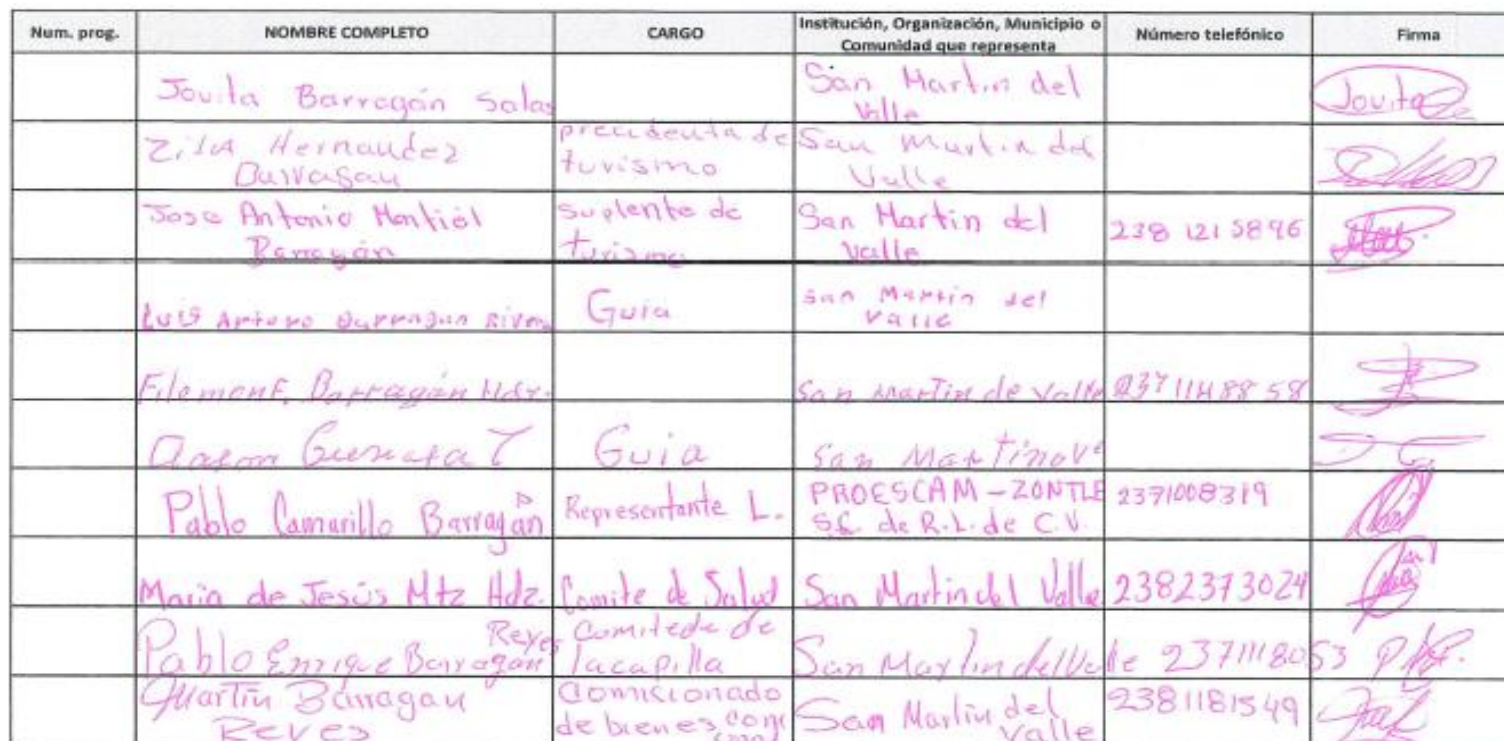 Num. prog. NOMBRE COMPLETO CARGO Institución, Organización, Municipio o Comunidad que representa Número telefónico Firma
Jovita Barragán Salas San Martin del Valle Jovita
Zila Hernandez Barragan precidenta de turismo San Martin del Valle
Jose Antonio Montiel Barragán Suplente de turismo San Martin del Valle 238 121 5896
Luis Arturo Barragan Rivera Guia San Martin del Valle
Filemon F. Barragán Hdz. San Martin de Valle 237 114 88 58
Guia San Martin
Pablo Camarillo Barragán Representante L. PROESCAM - ZONTLE S.C. de R.L. de C.V. 2371008319
Maria de Jesús Mtz Hdz. Comite de Salud San Martin del Valle 2382373024
Pablo Enrique Barragan Reyes Comitede de lacapilla San Martin del Valle 2371118053
Martin Barragan Reyes Comicionado de bienes San Martin del Valle 2381181549